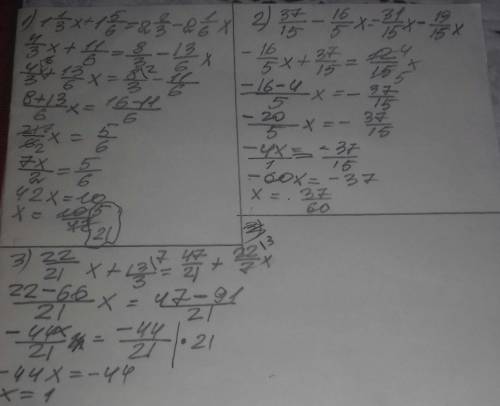 1) 1 1/3 x + 1 5/6 = 2 2/3 - 2 1/6 x
4/3 x + 11/6 = 8/3 - 13/6 x
4x/3 + 13/6 x = 8/3 - 11/6
8+13/6 x = 16-11/6
x = 5/6
7x/2 = 5/6
42x = 10
x = 5/21
2) 37/15 - 16/5 x = 31/15 x - 19/15 x
-16/5 x + 37/15 = x
-16-4/5 x = - 37/15
-20/5 x = - 37/15
-4x/1 = - 37/15
-60x = -37
x = 37/60
3) 22/21 x + 13/3 = 47/21 + 22/7 x
22-66/21 x = 47-91/21
-44x/21 = -44/21 | • 21
-44x = -44
x = 1